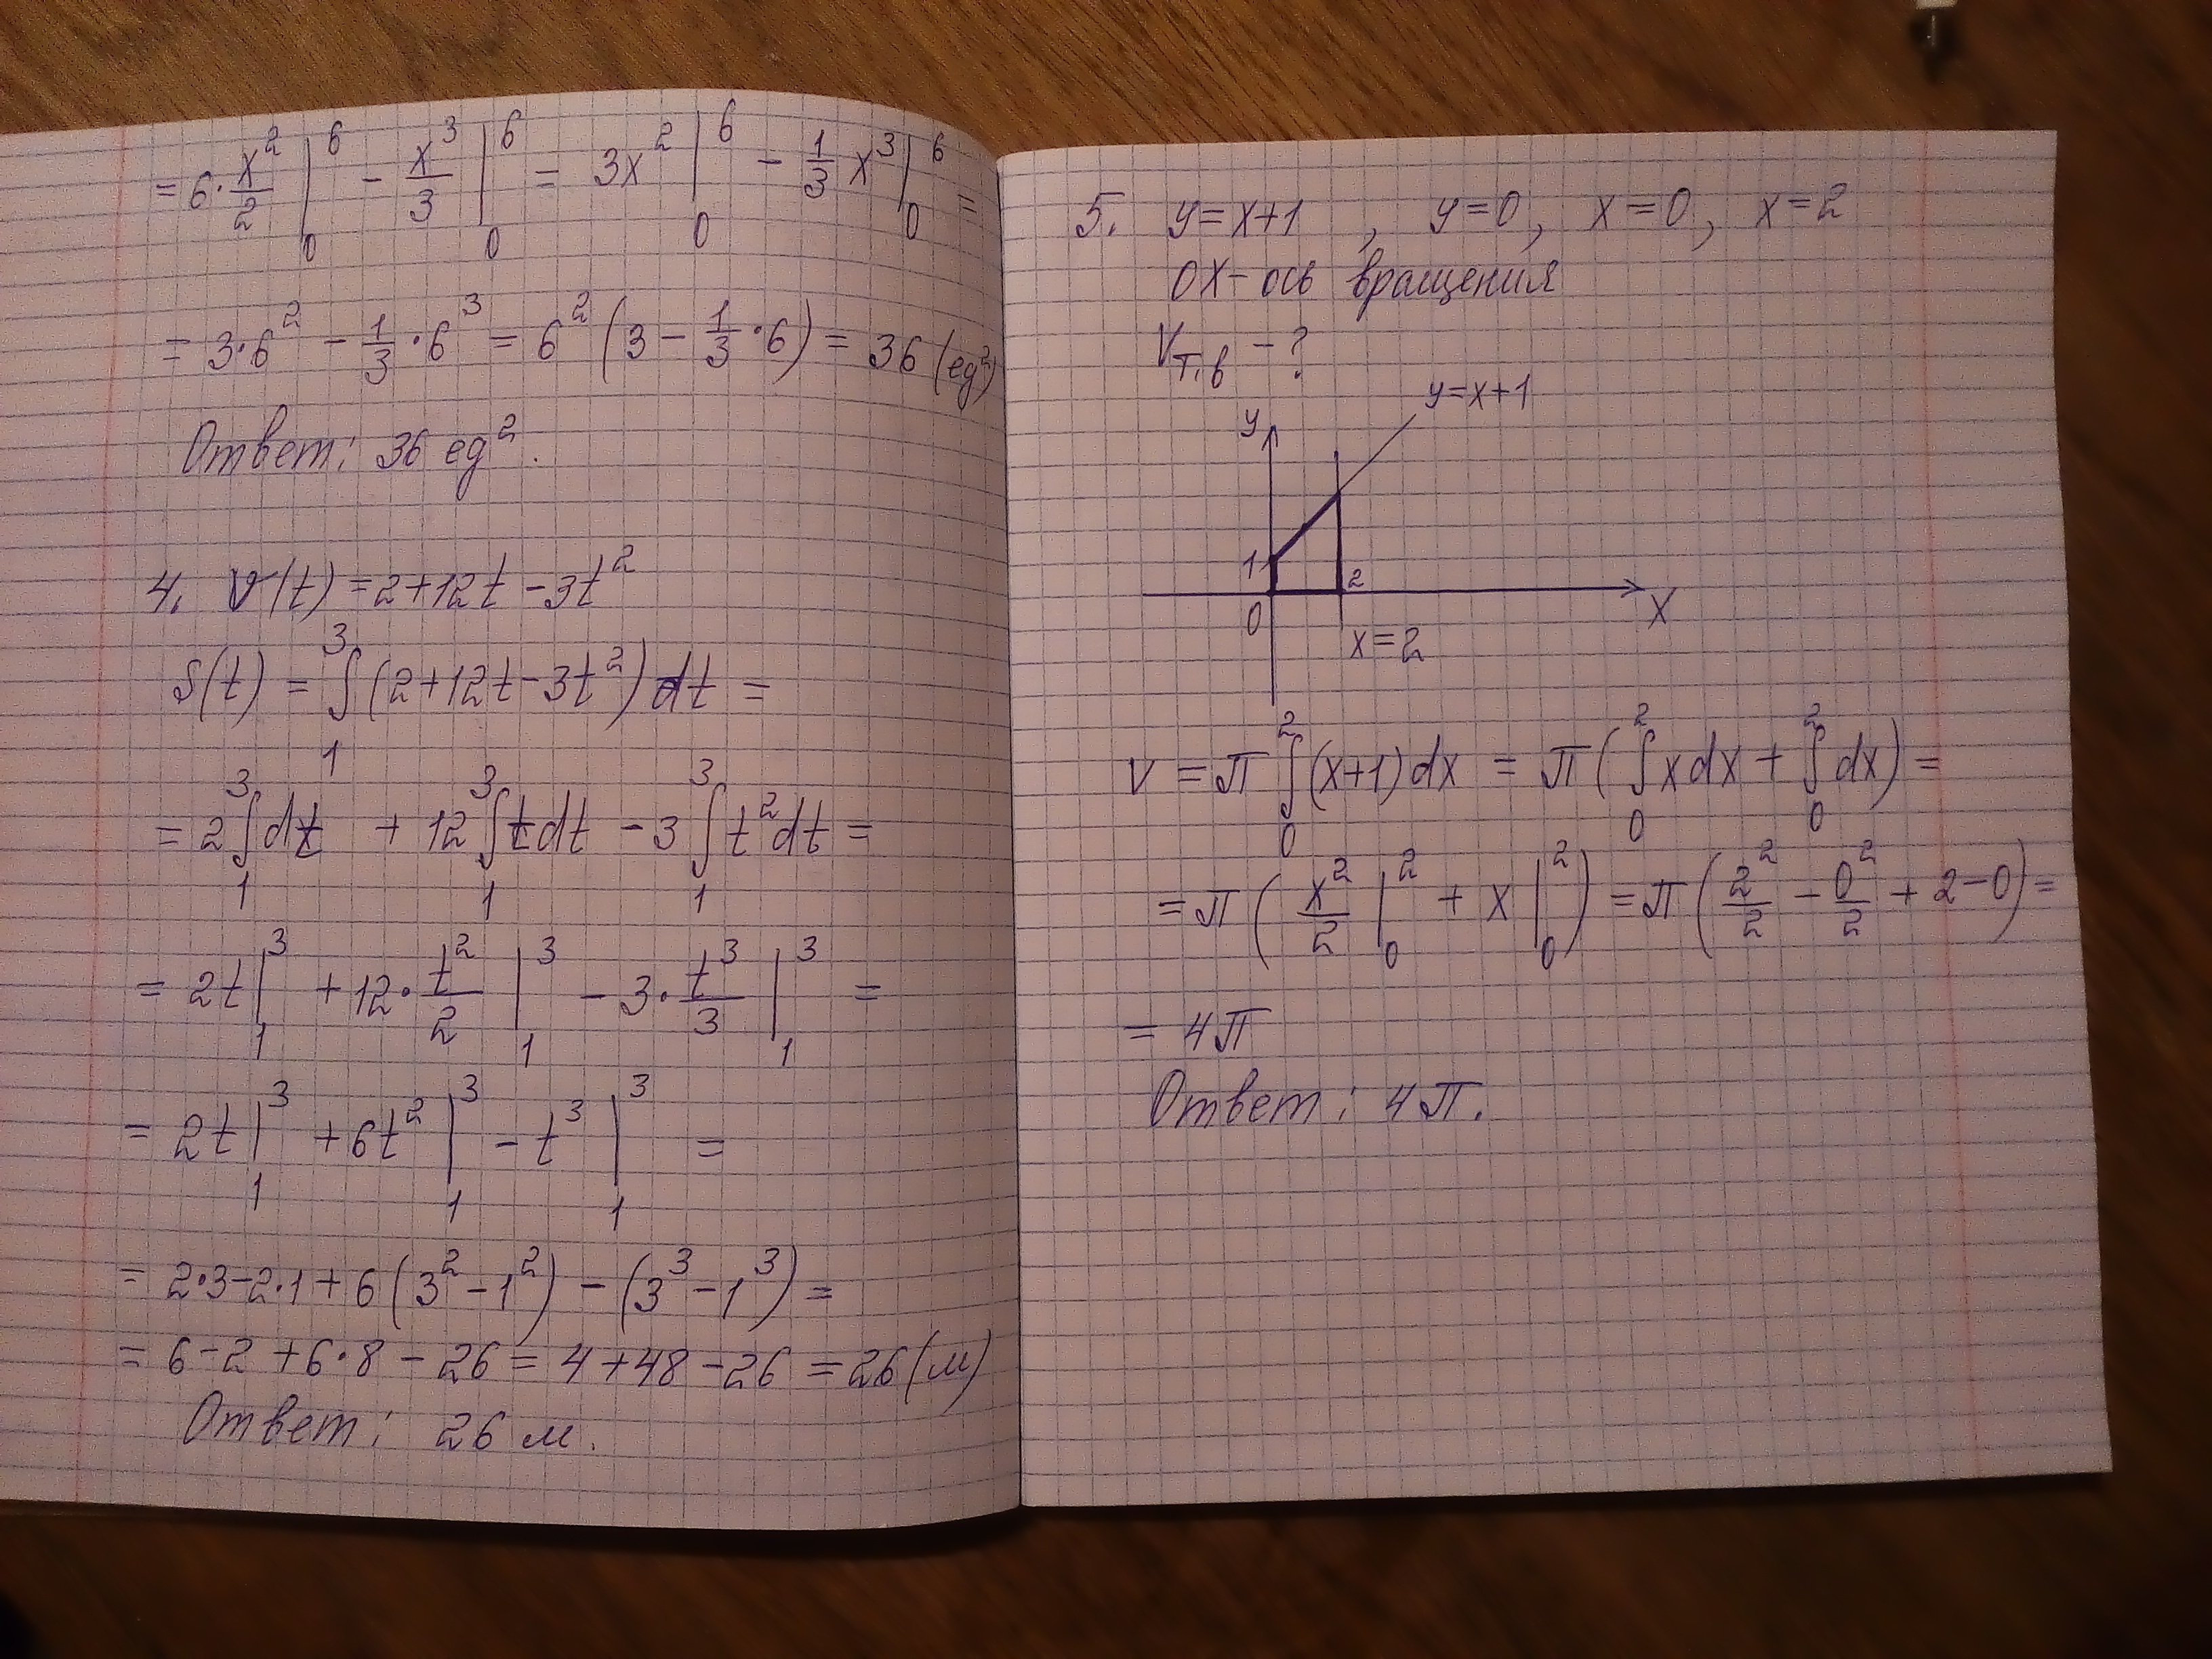 = 6·x²/2 |₀⁶ − x³/3 |₀⁶ = 3x² |₀⁶ − 1/3 x³ |₀⁶ =
= 3·6² − 1/3·6³ = 6²(3 − 1/3·6) = 36 (ед²)
Ответ: 36 ед².
4. v(t) = 2+12t−3t²
S(t) = ∫₁³ (2+12t−3t²) dt =
= 2∫₁³ dt + 12∫₁³ t dt − 3∫₁³ t² dt =
= 2t |₁³ + 12·t²/2 |₁³ − 3·t³/3 |₁³ =
= 2t |₁³ + 6t² |₁³ − t³ |₁³ =
= 2·3−2·1+6(3²−1²) − (3³−1³) =
= 6−2+6·8−26 = 4+48−26 = 26 (м)
Ответ: 26 м.
5. y=x+1, y=0, x=0, x=2
OX − ось вращения
Vт.в − ?
y=x+1
y
1
2
0
X
x=2
V = π ∫₀² (x+1)dx = π(∫₀² xdx + ∫₀² dx) =
= π(x²/2 |₀² + x |₀²) = π(2²/2 − 0²/2 + 2−0) =
= 4π
Ответ: 4π.